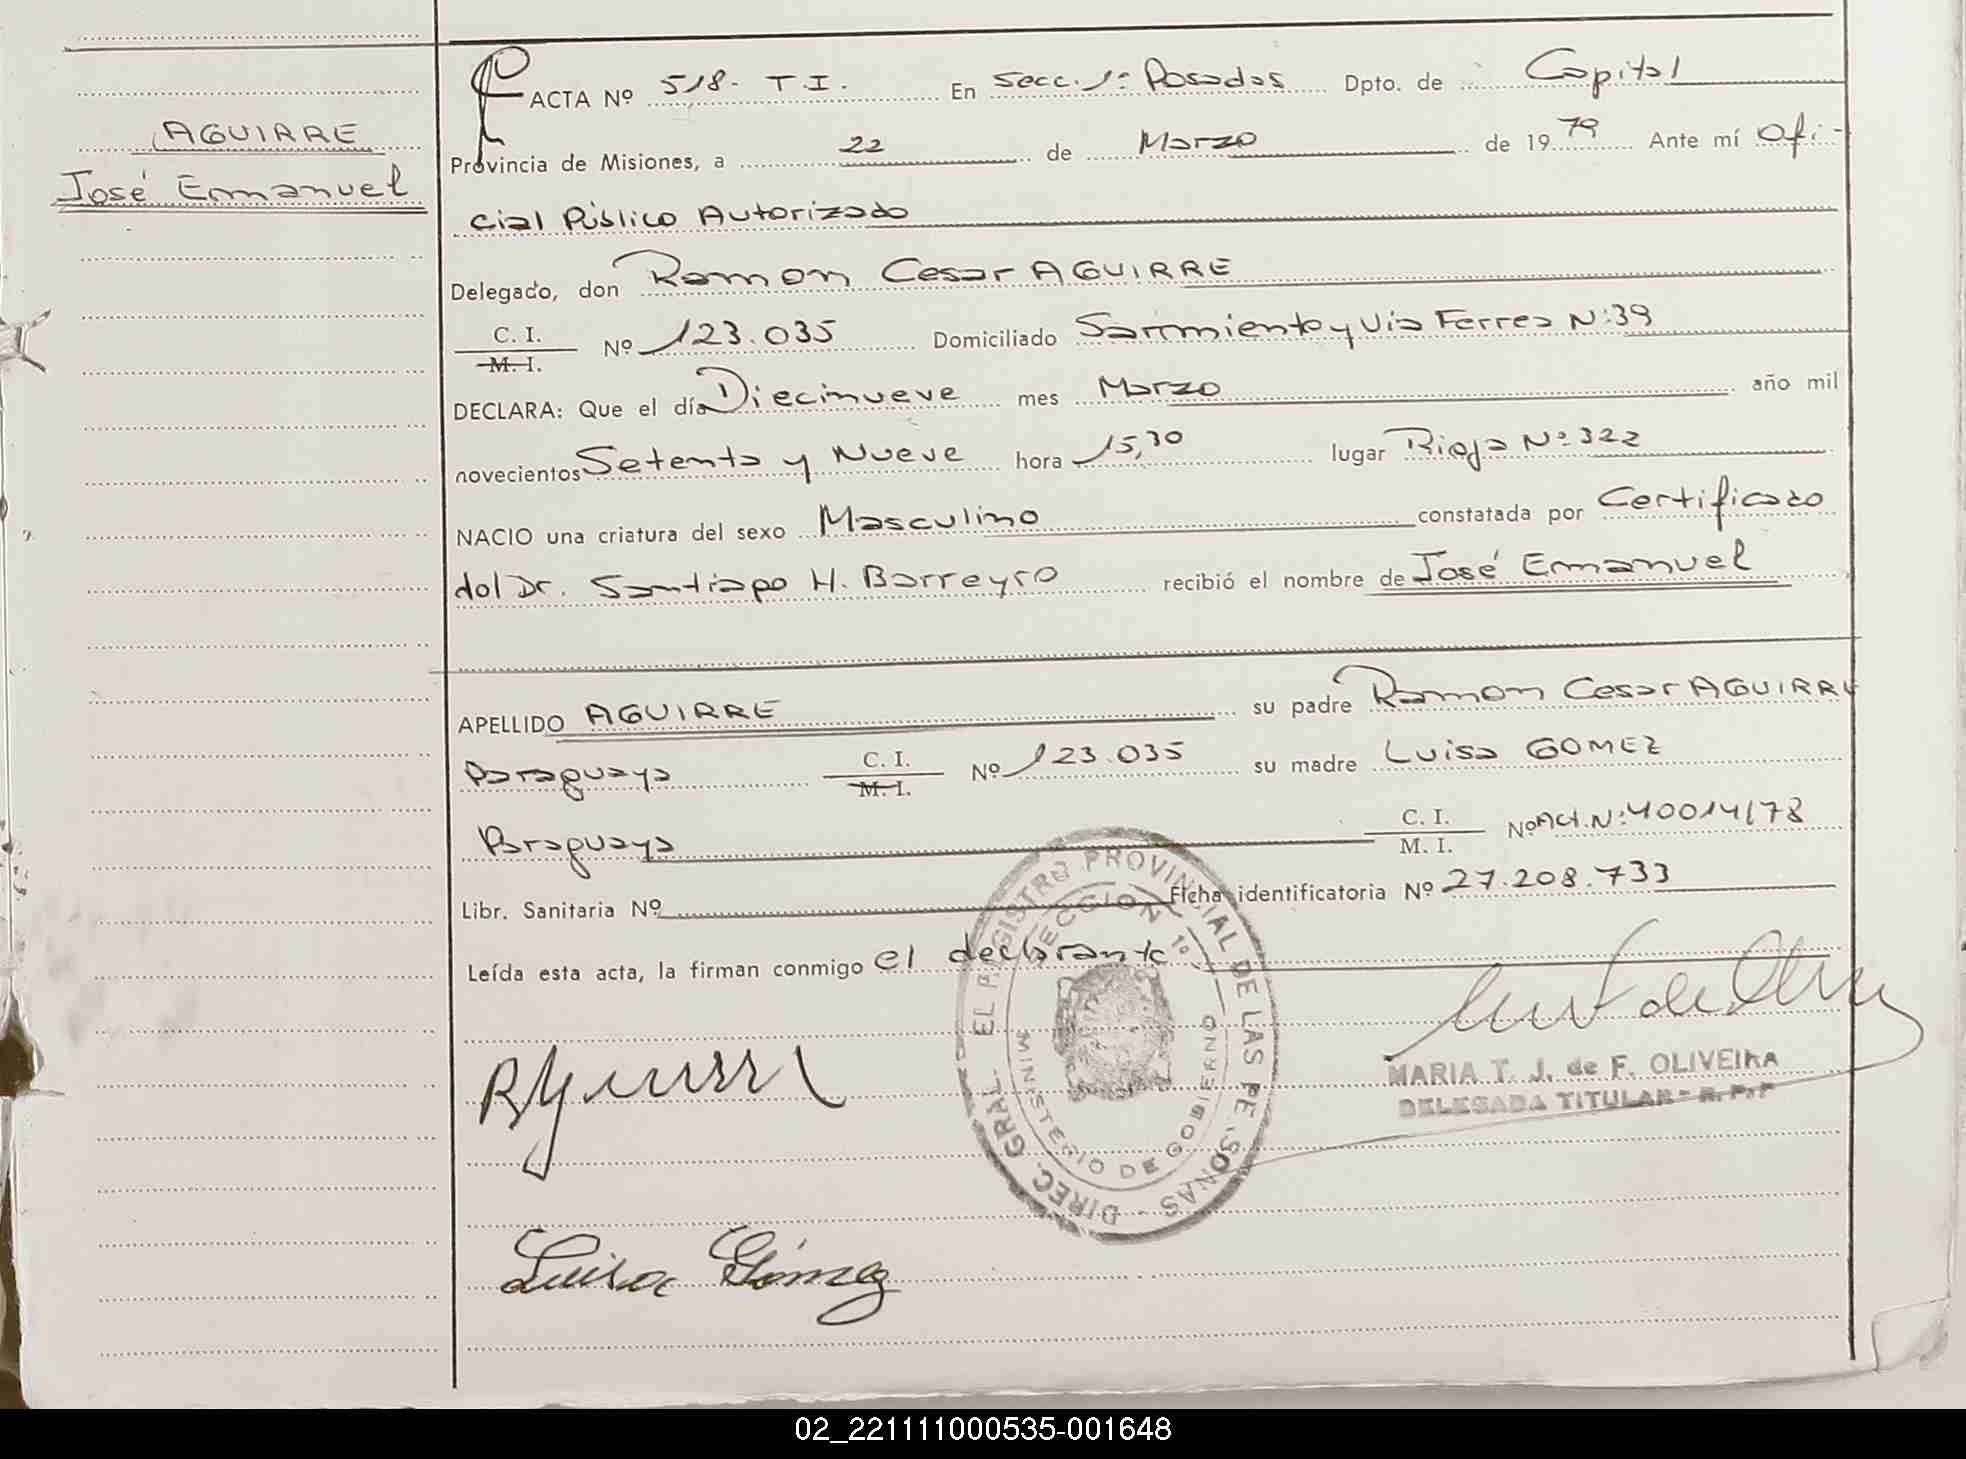 AGUIRRE
José Emmanuel
ACTA Nº 518- T.I. En Secc. 1ª Posadas Dpto. de Capital
Provincia de Misiones, a 22 de Marzo de 1979 Ante mí Ofi-
cial Público Autorizado
Delegado, don Ramon Cesar AGUIRRE
C. I.
M. I.
Nº 123.035 Domiciliado Sarmiento y Via Ferrea Nº 39
DECLARA: Que el día Diecinueve mes Marzo año mil
novecientos Setenta y Nueve hora 15,30 lugar Rioja Nº 322
NACIO una criatura del sexo Masculino constatada por Certificado
del Dr. Santiago H. Barreyro recibió el nombre de José Emmanuel
APELLIDO AGUIRRE su padre Ramon Cesar AGUIRRE
Paraguaya C. I. Nº 123.035 su madre Luisa GOMEZ
M. I.
Paraguaya C. I. Nº Act. Nº 40014/78
M. I.
Libr. Sanitaria Nº Ficha identificatoria Nº 27.208.733
Leída esta acta, la firman conmigo el declarante
DIREC. GRAL. EL REGISTRO PROVINCIAL DE LAS PERSONAS -
SECCION 1ª
MINISTERIO DE GOBIERNO
MARIA T. J. de F. OLIVEIRA
DELEGADA TITULAR - R. P. P
Luisa Gómez
02_221111000535-001648